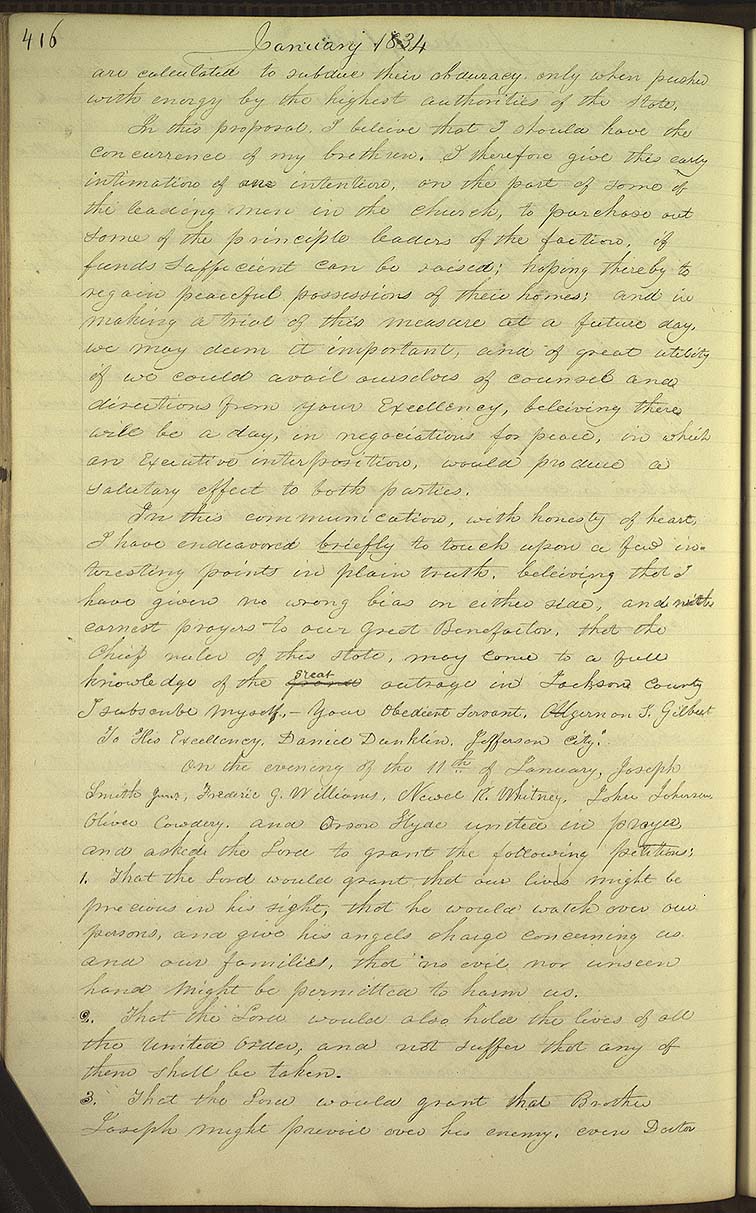 416
January 1834
are calculated to subdue their obduracy. only when pushed
with energy by the highest authorities of the State.
In this proposal, I beleive that I should have the
concurrence of my brethren. I therefore give this early
intimation of our intention, on the part of some of
the leading men in the church, to purchase out
some of the principle leaders of the faction, if
funds sufficient can be raised; hoping thereby to
regain peaceful possessions of their homes; and in
making a trial of this measure at a future day,
we may deem it important, and of great utility
if we could avail ourselves of counsel and
directions from your Excellency, beleiving there
will be a day, in negociations for peace, in which
an Executive interposition, would produce a
salutary effect to both parties.
In this communication, with honesty of heart,
I have endeavored briefly to touch upon a few in=
teresting points in plain truth, beleiving that I
have given no wrong bias on either side, and with
earnest prayers to our Great Benefactor, that the
Chief ruler of this state, may come to a full
knowledge of the grand great outrage in Jackson County
I subscribe myself,— Your Obedient Servant. Algernon S. Gilbert
To His Excellency, Daniel Dunklin, Jefferson City."
On the evening of the 11th of January, Joseph
Smith Junr, Frederic G. Williams, Newel K. Whitney, John Johnson,
Oliver Cowdery, and Orson Hyde united in prayer
and asked the Lord to grant the following petitions:
1. That the Lord would grant that our lives might be
precious in his sight, that he would watch over our
persons, and give his angels charge concerning us
and our families, that no evil nor unseen
hand might be permitted to harm us.
2. That the Lord would also hold the lives of all
the United Order, and not suffer that any of
them shall be taken.
3. That the Lord would grant that Brother
Joseph might prevail over his enemy, even Doctor